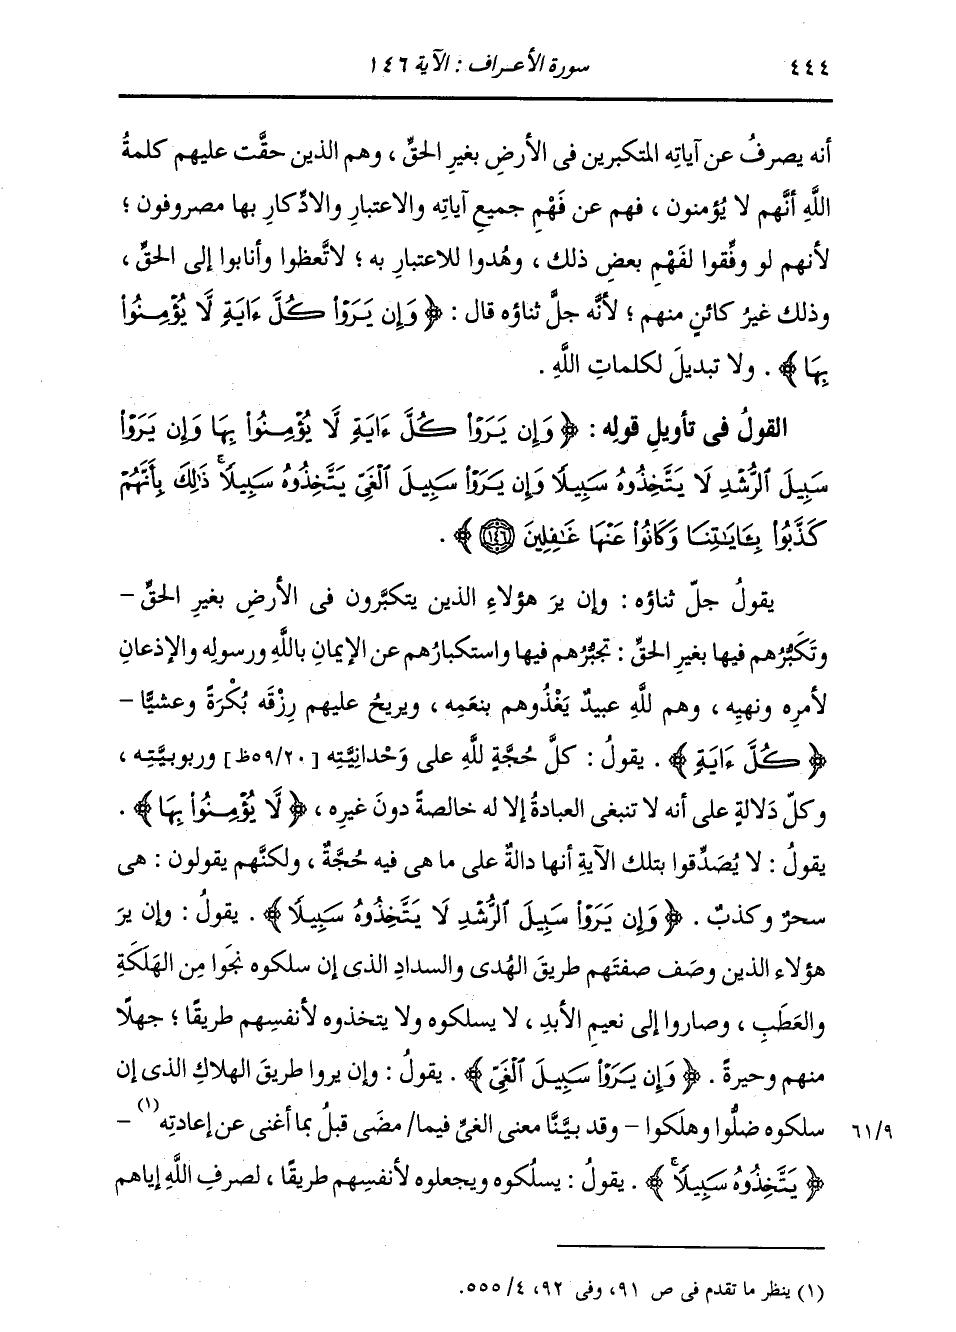 ٤٤٤ سورة الأعراف : الآية ١٤٦
أنه يصرفُ عن آياتِه المتكبرين فى الأرضِ بغيرِ الحقِّ ، وهم الذين حقَّت عليهم كلمةُ
اللَّهِ أنَّهم لا يُؤمنون ، فهم عن فَهْمِ جميعِ آياتِه والاعتبارِ والادِّكارِ بها مصروفون ؛
لأنهم لو وفِّقوا لفَهْمِ بعضِ ذلك ، وهُدوا للاعتبارِ به ؛ لاتَّعظوا وأنابوا إلى الحقِّ ،
وذلك غيرُ كائنٍ منهم ؛ لأنَّه جلَّ ثناؤه قال : ﴿ وَإِن يَرَوْاْ كُلَّ ءَايَةٍ لَّا يُؤْمِنُواْ
بِهَا ﴾ . ولا تبديلَ لكلماتِ اللَّهِ .
القولُ فى تأويلِ قولِه : ﴿ وَإِن يَرَوْاْ كُلَّ ءَايَةٍ لَّا يُؤْمِنُواْ بِهَا وَإِن يَرَوْاْ
سَبِيلَ ٱلرُّشْدِ لَا يَتَّخِذُوهُ سَبِيلًا وَإِن يَرَوْاْ سَبِيلَ ٱلْغَىِّ يَتَّخِذُوهُ سَبِيلًا ۚ ذَٰلِكَ بِأَنَّهُمْ
كَذَّبُواْ بِـَٔايَٰتِنَا وَكَانُواْ عَنْهَا غَٰفِلِينَ ١٤٦ ﴾ .
يقولُ جلّ ثناؤه : وإن يرَ هؤلاءِ الذين يتكبَّرون فى الأرضِ بغيرِ الحقِّ –
وتَكَبُّرُهم فيها بغيرِ الحقِّ : تجبُّرُهم فيها واستكبارُهم عن الإيمانِ باللَّهِ ورسولِه والإذعانِ
لأمرِه ونهيِه ، وهم للَّهِ عبيدٌ يَغْذُوهم بنعَمِه ، ويريحُ عليهم رِزْقَه بُكْرَةً وعشيًّا –
﴿ كُلَّ ءَايَةٍ ﴾ . يقولُ : كلَّ حُجَّةٍ للَّهِ على وَحْدانِيَّتِه [٥٩/٢٠ظ] وربوبيَّتِه ،
وكلّ دَلالةٍ على أنه لا تنبغى العبادةُ إلا له خالصةً دونَ غيرِه ، ﴿ لَّا يُؤْمِنُواْ بِهَا ﴾ .
يقولُ : لا يُصَدِّقوا بتلك الآيةِ أنها دالةٌ على ما هى فيه حُجَّةٌ ، ولكنَّهم يقولون : هى
سحرٌ وكذبٌ . ﴿ وَإِن يَرَوْاْ سَبِيلَ ٱلرُّشْدِ لَا يَتَّخِذُوهُ سَبِيلًا ﴾ . يقولُ : وإن يرَ
هؤلاء الذين وصَف صفتَهم طريقَ الهُدى والسدادِ الذى إن سلكوه نجَوا مِن الهَلَكَةِ
والعَطَبِ ، وصاروا إلى نعيمِ الأبدِ ، لا يسلكوه ولا يتخذوه لأنفسِهم طريقًا ؛ جهلًا
منهم وحيرةً . ﴿ وَإِن يَرَوْاْ سَبِيلَ ٱلْغَىِّ ﴾ . يقولُ : وإن يروا طريقَ الهلاكِ الذى إن
سلكوه ضلُّوا وهلَكوا – وقد بيَّنَّا معنى الغىِّ فيما/ مضَى قبلُ بما أغنى عن إعادتِه(١) – ٦١/٩
﴿ يَتَّخِذُوهُ سَبِيلًا ۚ ﴾ . يقولُ : يسلُكوه ويجعلوه لأنفسِهم طريقًا ، لصرفِ اللَّهِ إياهم
(١) ينظر ما تقدم فى ص ٩١، وفى ٩٢، ٥٥٥/٤.